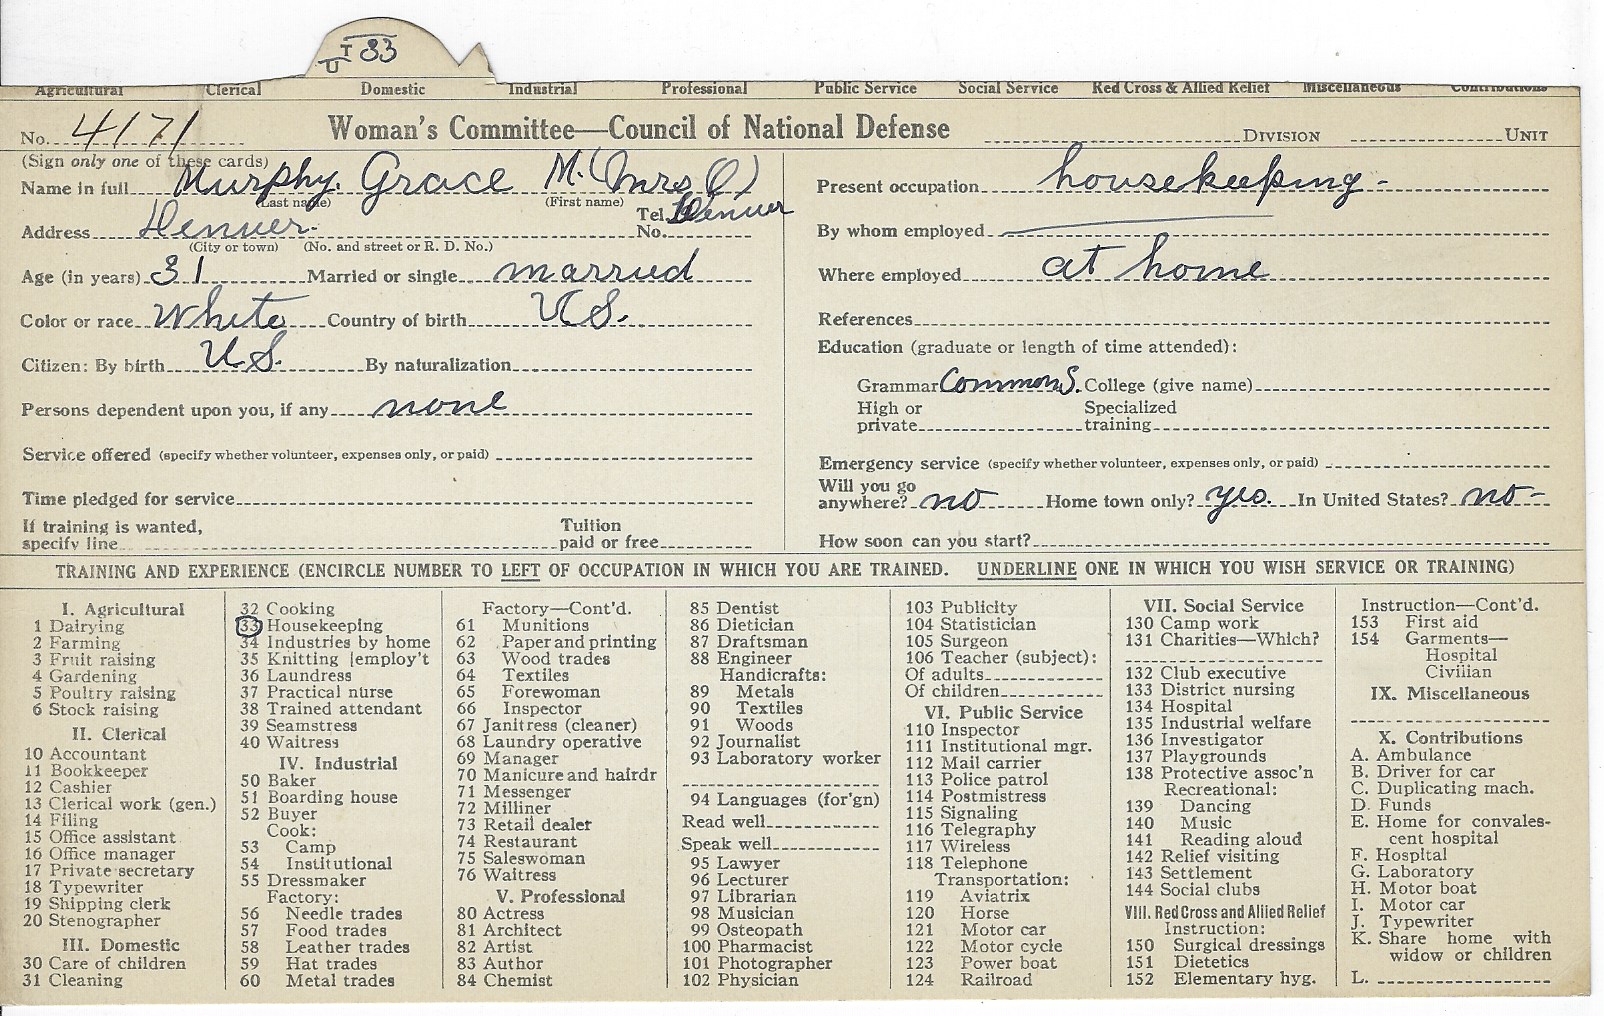 T U 33
Agricultural Clerical Domestic Industrial Professional Public Service Social Service Red Cross & Allied Relief Miscellaneous Contributions
No. 4171 Woman's Committee—Council of National Defense DIVISION UNIT
(Sign only one of these cards)
Name in full Murphy. Grace M. (Mrs O)
(Last name) (First name)
Address Denver. Tel. No. Denver
(City or town) (No. and street or R. D. No.)
Age (in years) 31 Married or single married
Color or race White Country of birth U S.
Citizen: By birth U.S. By naturalization
Persons dependent upon you, if any none
Service offered (specify whether volunteer, expenses only, or paid)
Time pledged for service
If training is wanted, specify line Tuition paid or free
Present occupation housekeeping-
By whom employed
Where employed at home
References
Education (graduate or length of time attended):
Grammar Common S. College (give name)
High or private Specialized training
Emergency service (specify whether volunteer, expenses only, or paid)
Will you go anywhere? no Home town only? yes. In United States? no-
How soon can you start?
TRAINING AND EXPERIENCE (ENCIRCLE NUMBER TO LEFT OF OCCUPATION IN WHICH YOU ARE TRAINED. UNDERLINE ONE IN WHICH YOU WISH SERVICE OR TRAINING)
I. Agricultural
1 Dairying
2 Farming
3 Fruit raising
4 Gardening
5 Poultry raising
6 Stock raising
II. Clerical
10 Accountant
11 Bookkeeper
12 Cashier
13 Clerical work (gen.)
14 Filing
15 Office assistant
16 Office manager
17 Private secretary
18 Typewriter
19 Shipping clerk
20 Stenographer
III. Domestic
30 Care of children
31 Cleaning
32 Cooking
33 Housekeeping
34 Industries by home
35 Knitting [employ't
36 Laundress
37 Practical nurse
38 Trained attendant
39 Seamstress
40 Waitress
IV. Industrial
50 Baker
51 Boarding house
52 Buyer
Cook:
53 Camp
54 Institutional
55 Dressmaker
Factory:
56 Needle trades
57 Food trades
58 Leather trades
59 Hat trades
60 Metal trades
Factory—Cont'd.
61 Munitions
62 Paper and printing
63 Wood trades
64 Textiles
65 Forewoman
66 Inspector
67 Janitress (cleaner)
68 Laundry operative
69 Manager
70 Manicure and hairdr
71 Messenger
72 Milliner
73 Retail dealer
74 Restaurant
75 Saleswoman
76 Waitress
V. Professional
80 Actress
81 Architect
82 Artist
83 Author
84 Chemist
85 Dentist
86 Dietician
87 Draftsman
88 Engineer
Handicrafts:
89 Metals
90 Textiles
91 Woods
92 Journalist
93 Laboratory worker
94 Languages (for'gn)
Read well
Speak well
95 Lawyer
96 Lecturer
97 Librarian
98 Musician
99 Osteopath
100 Pharmacist
101 Photographer
102 Physician
103 Publicity
104 Statistician
105 Surgeon
106 Teacher (subject):
Of adults
Of children
VI. Public Service
110 Inspector
111 Institutional mgr.
112 Mail carrier
113 Police patrol
114 Postmistress
115 Signaling
116 Telegraphy
117 Wireless
118 Telephone
Transportation:
119 Aviatrix
120 Horse
121 Motor car
122 Motor cycle
123 Power boat
124 Railroad
VII. Social Service
130 Camp work
131 Charities—Which?
132 Club executive
133 District nursing
134 Hospital
135 Industrial welfare
136 Investigator
137 Playgrounds
138 Protective assoc'n
Recreational:
139 Dancing
140 Music
141 Reading aloud
142 Relief visiting
143 Settlement
144 Social clubs
VIII. Red Cross and Allied Relief
Instruction:
150 Surgical dressings
151 Dietetics
152 Elementary hyg.
Instruction—Cont'd.
153 First aid
154 Garments—
Hospital
Civilian
IX. Miscellaneous
X. Contributions
A. Ambulance
B. Driver for car
C. Duplicating mach.
D. Funds
E. Home for convales-
cent hospital
F. Hospital
G. Laboratory
H. Motor boat
I. Motor car
J. Typewriter
K. Share home with
widow or children
L.